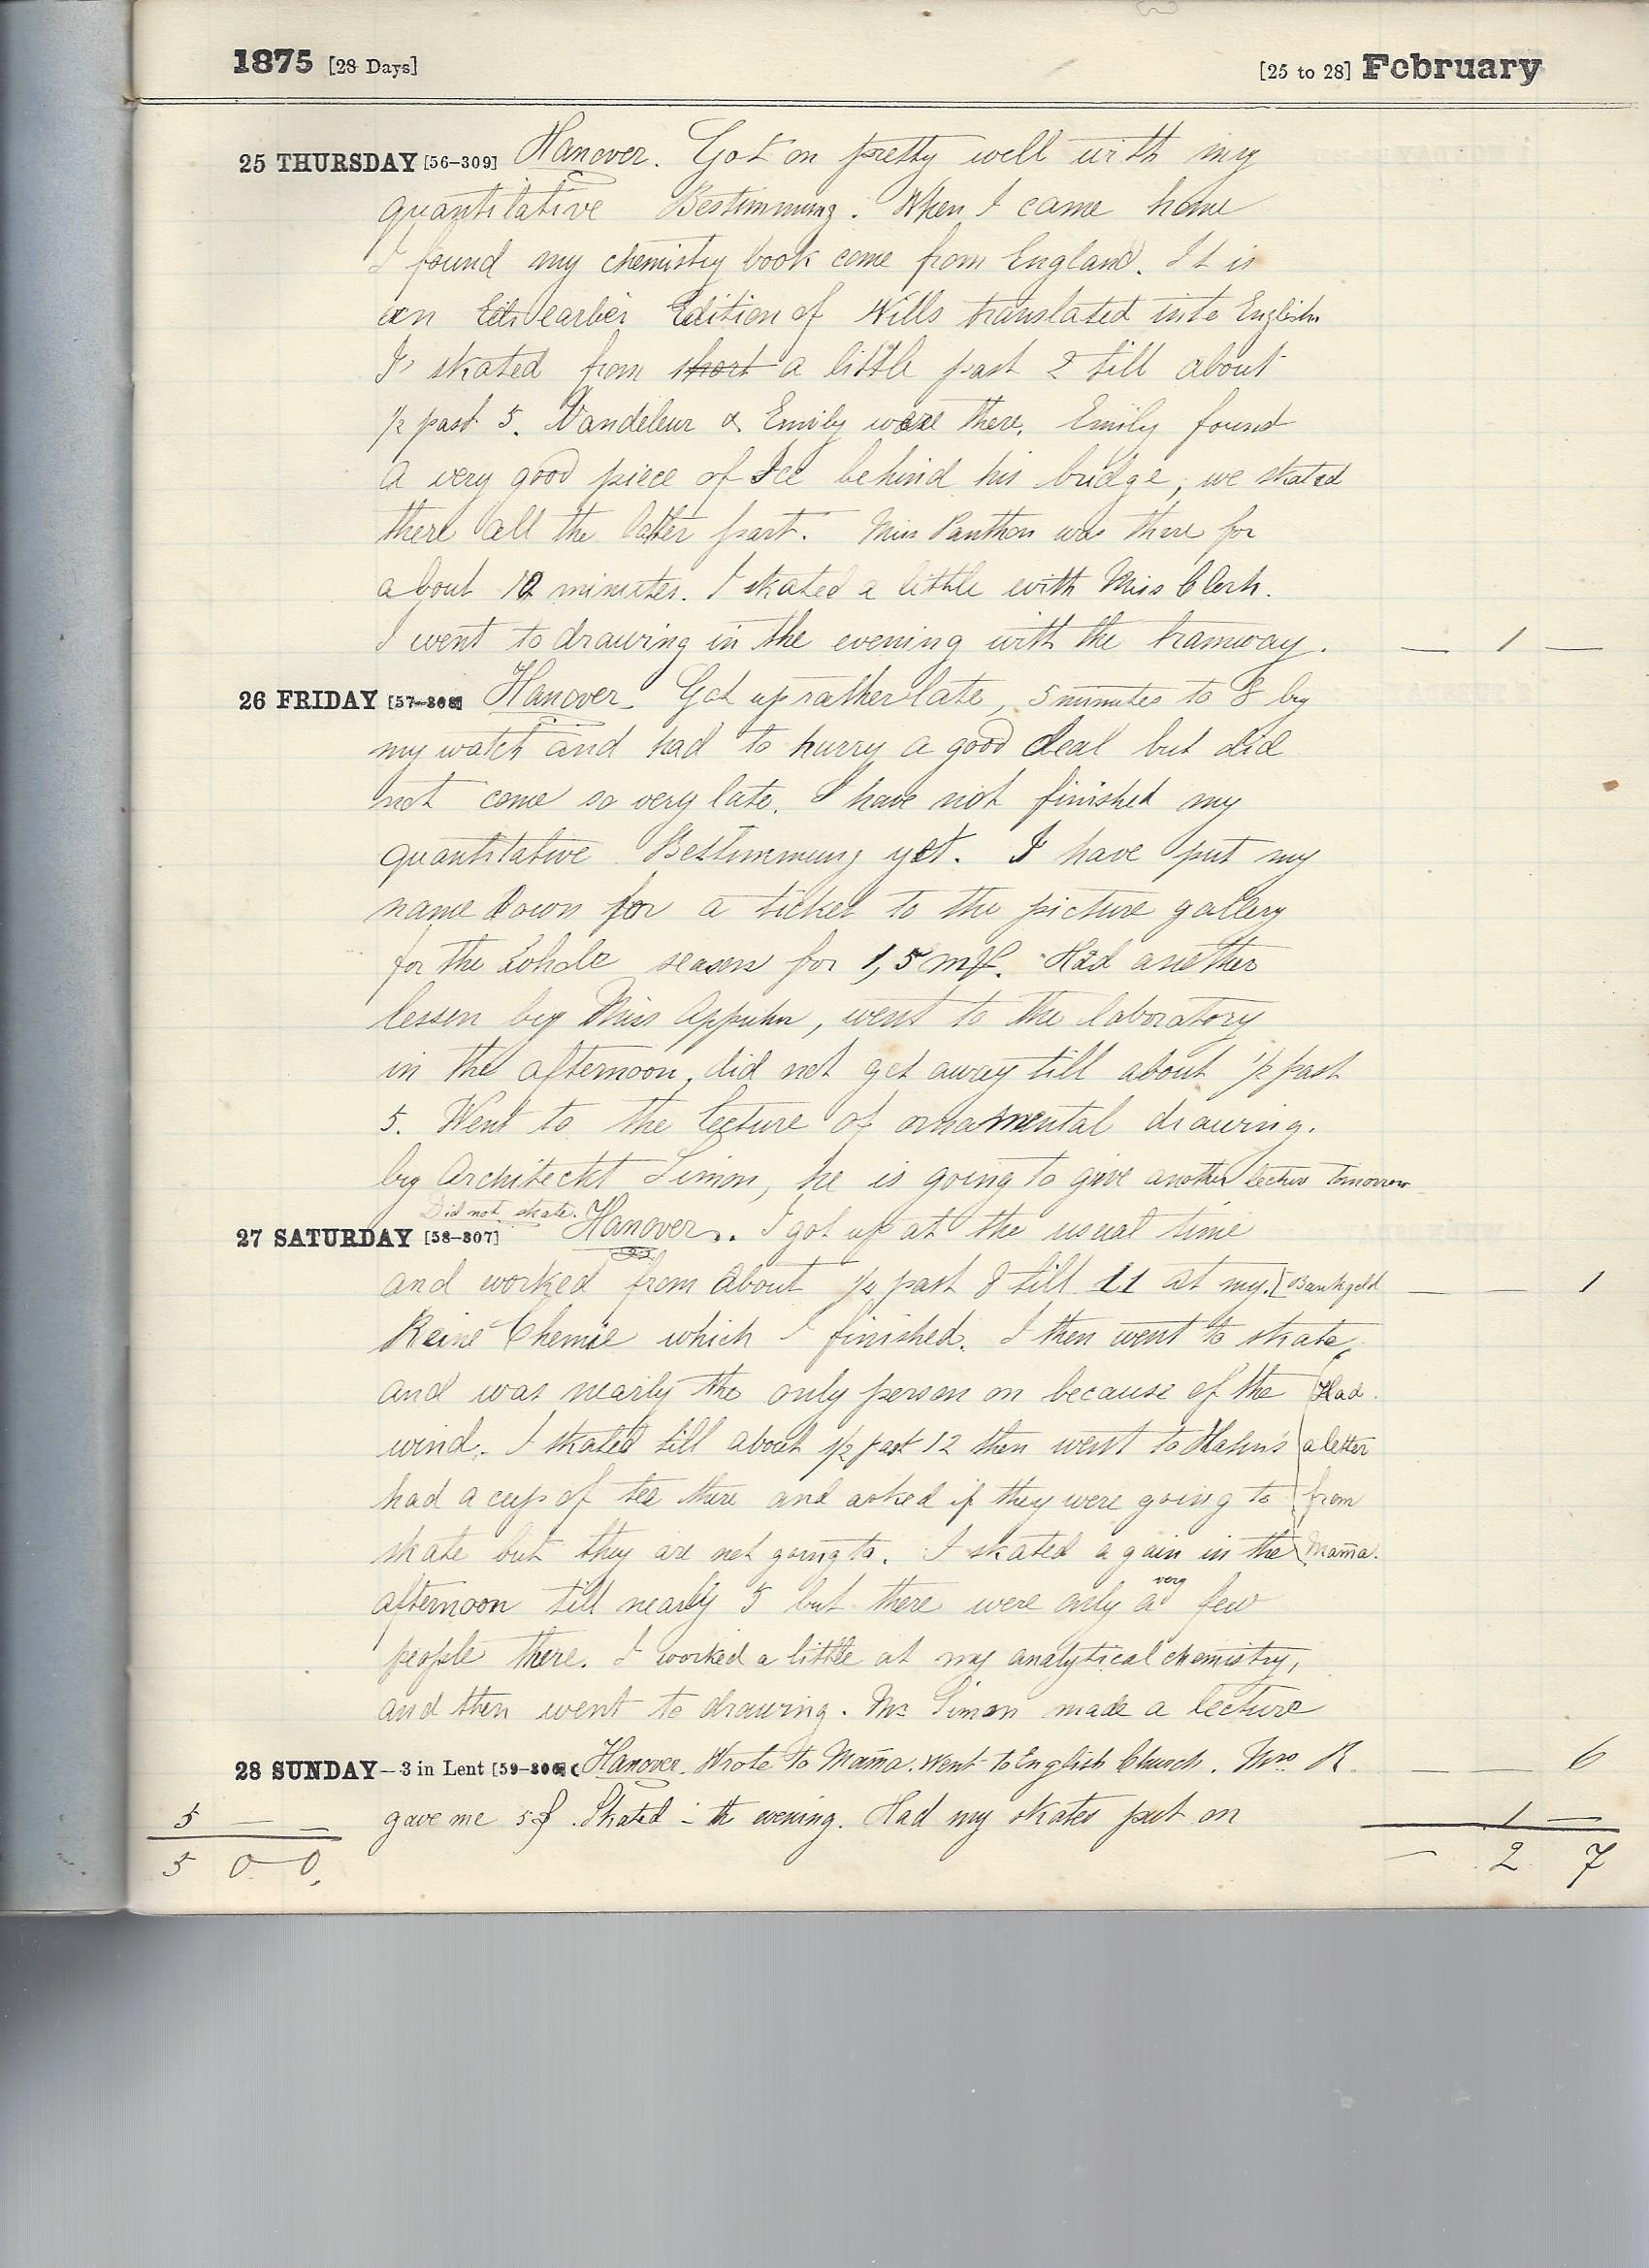 1875 [28 Days] [25 to 28] February
25 THURSDAY [56-309] Hanover. Got on pretty well with my
quantitative Bestimmung. When I came home
I found my chemistry book come from England. It is
an earlier Edition of Wills translated into English.
I skated from short a little past 2 till about
1/2 past 5. Vandeleur & Emily were there. Emily found
a very good piece of Ice behind his bridge, we skated
there all the latter part. Miss Panthon was there for
about 10 minutes. I skated a little with Miss Clerk.
I went to drawing in the evening with the tramway. — 1 —
26 FRIDAY [57-308] Hanover. Got up rather late, 5 minutes to 8 by
my watch and had to hurry a good deal but did
not come so very late. I have not finished my
quantitative Bestimmung yet. I have put my
name down for a ticket to the picture gallery
for the whole season for 1,5 mk. Had another
lesson by Miss Appuhn, went to the laboratory
in the afternoon, did not get away till about 1/2 past
5. Went to the lecture of ornamental drawing.
by Architeckt Simon, he is going to give another lecture tomorrow
Did not skate.
27 SATURDAY [58-307] Hanover. I got up at the usual time
and worked from about 1/4 past 8 till 11 at my [Bankgeld — — 1
Reine Chemie which I finished. I then went to skate,
and was nearly the only person on because of the (Had
wind. I skated till about 1/2 past 12 then went to Hahn's a letter
had a cup of tea there and asked if they were going to from
skate but they are not going to. I skated again in the Mama.
afternoon till nearly 5 but there were only a very few
people there. I worked a little at my analytical chemistry,
and then went to drawing. Mr Simon made a lecture
28 SUNDAY—3 in Lent [59-306] Hanover. Wrote to Mama. Went to English Church. Mrs R. — — 6
5 — — gave me 5£. Skated in the evening. Had my skates put on 1 —
5 0 0. — 2 7